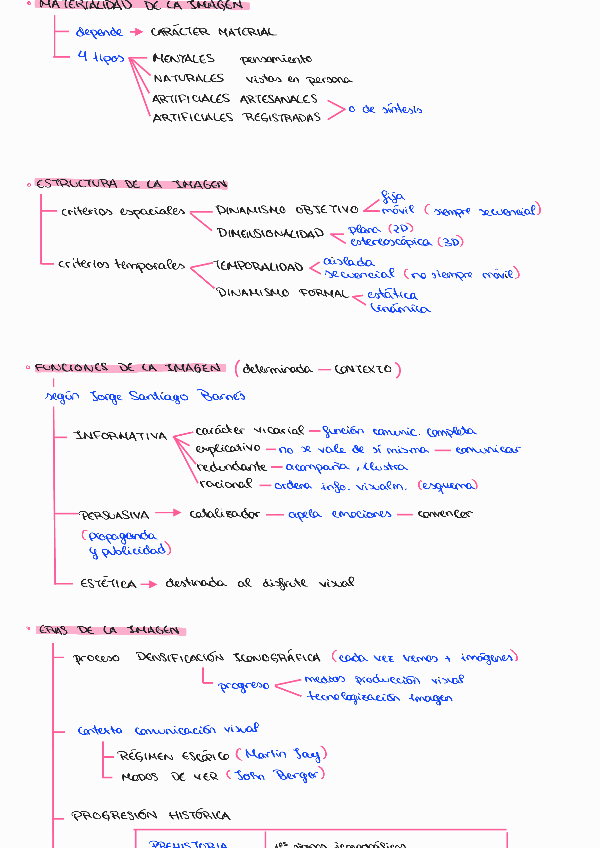 MATERIALIDAD DE LA IMAGEN
depende → CARÁCTER MATERIAL
4 tipos
MENTALES pensamiento
NATURALES vistas en persona
ARTIFICIALES ARTESANALES
ARTIFICIALES REGISTRADAS
o de síntesis
ESTRUCTURA DE LA IMAGEN
criterios espaciales
DINAMISMO OBJETIVO
fija
móvil (siempre secuencial)
DIMENSIONALIDAD
plana (2D)
estereoscópica (3D)
criterios temporales
TEMPORALIDAD
aislada
secuencial (no siempre móvil)
DINAMISMO FORMAL
estática
dinámica
FUNCIONES DE LA IMAGEN (determinada — CONTEXTO)
según Jorge Santiago Barnés
INFORMATIVA
carácter vicarial — función comunic. completa
explicativo — no se vale de sí misma — comunicar
redundante — acompaña, ilustra
racional — ordena info. visualm. (esquema)
PERSUASIVA → catalizador — apela emociones — convencer
(propaganda
y publicidad)
ESTÉTICA → destinada al disfrute visual
ERAS DE LA IMAGEN
proceso DENSIFICACIÓN ICONOGRÁFICA (cada vez vemos + imágenes)
progreso
medios producción visual
tecnologización imagen
contexto comunicación visual
RÉGIMEN ESCÓPICO (Martin Jay)
MODOS DE VER (John Berger)
PROGRESIÓN HISTÓRICA
PREHISTORIA